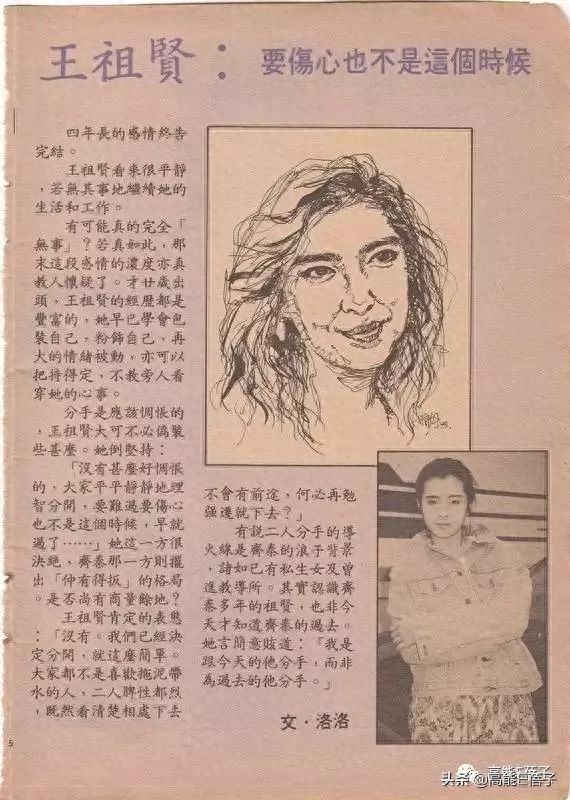 王祖賢：要傷心也不是這個時候
四年長的感情終告
完結。
王祖賢看來很平靜
，若無其事地繼續她的
生活和工作。
有可能真的完全「
無事」？若真如此，那
末這段感情的濃度亦真
教人懷疑了。才廿歲出
頭，王祖賢的經歷都是
豐富的，她早已學會包
裝自己，粉飾自己，再
大的情緒被動，亦可以
把持得定，不教旁人看
穿她的心事。
分手是應該惆悵的
，王祖賢大可不必偽裝
些甚麼。她倒堅持：
「沒有甚麼好惆悵
的，大家平平靜靜地理
智分開，要難過要傷心
也不是這個時候，早就
過了⋯⋯」她這一方很
決絶，齊泰那一方則擺
出「仲有得扳」的格局
。是否尚有商量餘地？
王祖賢肯定的表態
：「沒有。我們已經決
定分開，就這麼簡單。
大家都不是喜歡拖泥帶
水的人，二人脾性都烈
，既然看清楚相處下去
不會有前途，何必再勉
強遷就下去？」
有說二人分手的導
火線是齊泰的浪子背景
，諸如已有私生女及曾
進教導所。其實認識齊
泰多年的祖賢，也非今
天才知道齊泰的過去。
她言簡意賅道：「我是
跟今天的他分手，而非
為過去的他分手。」
文·洛洛
5
头条@高能巨蓉子